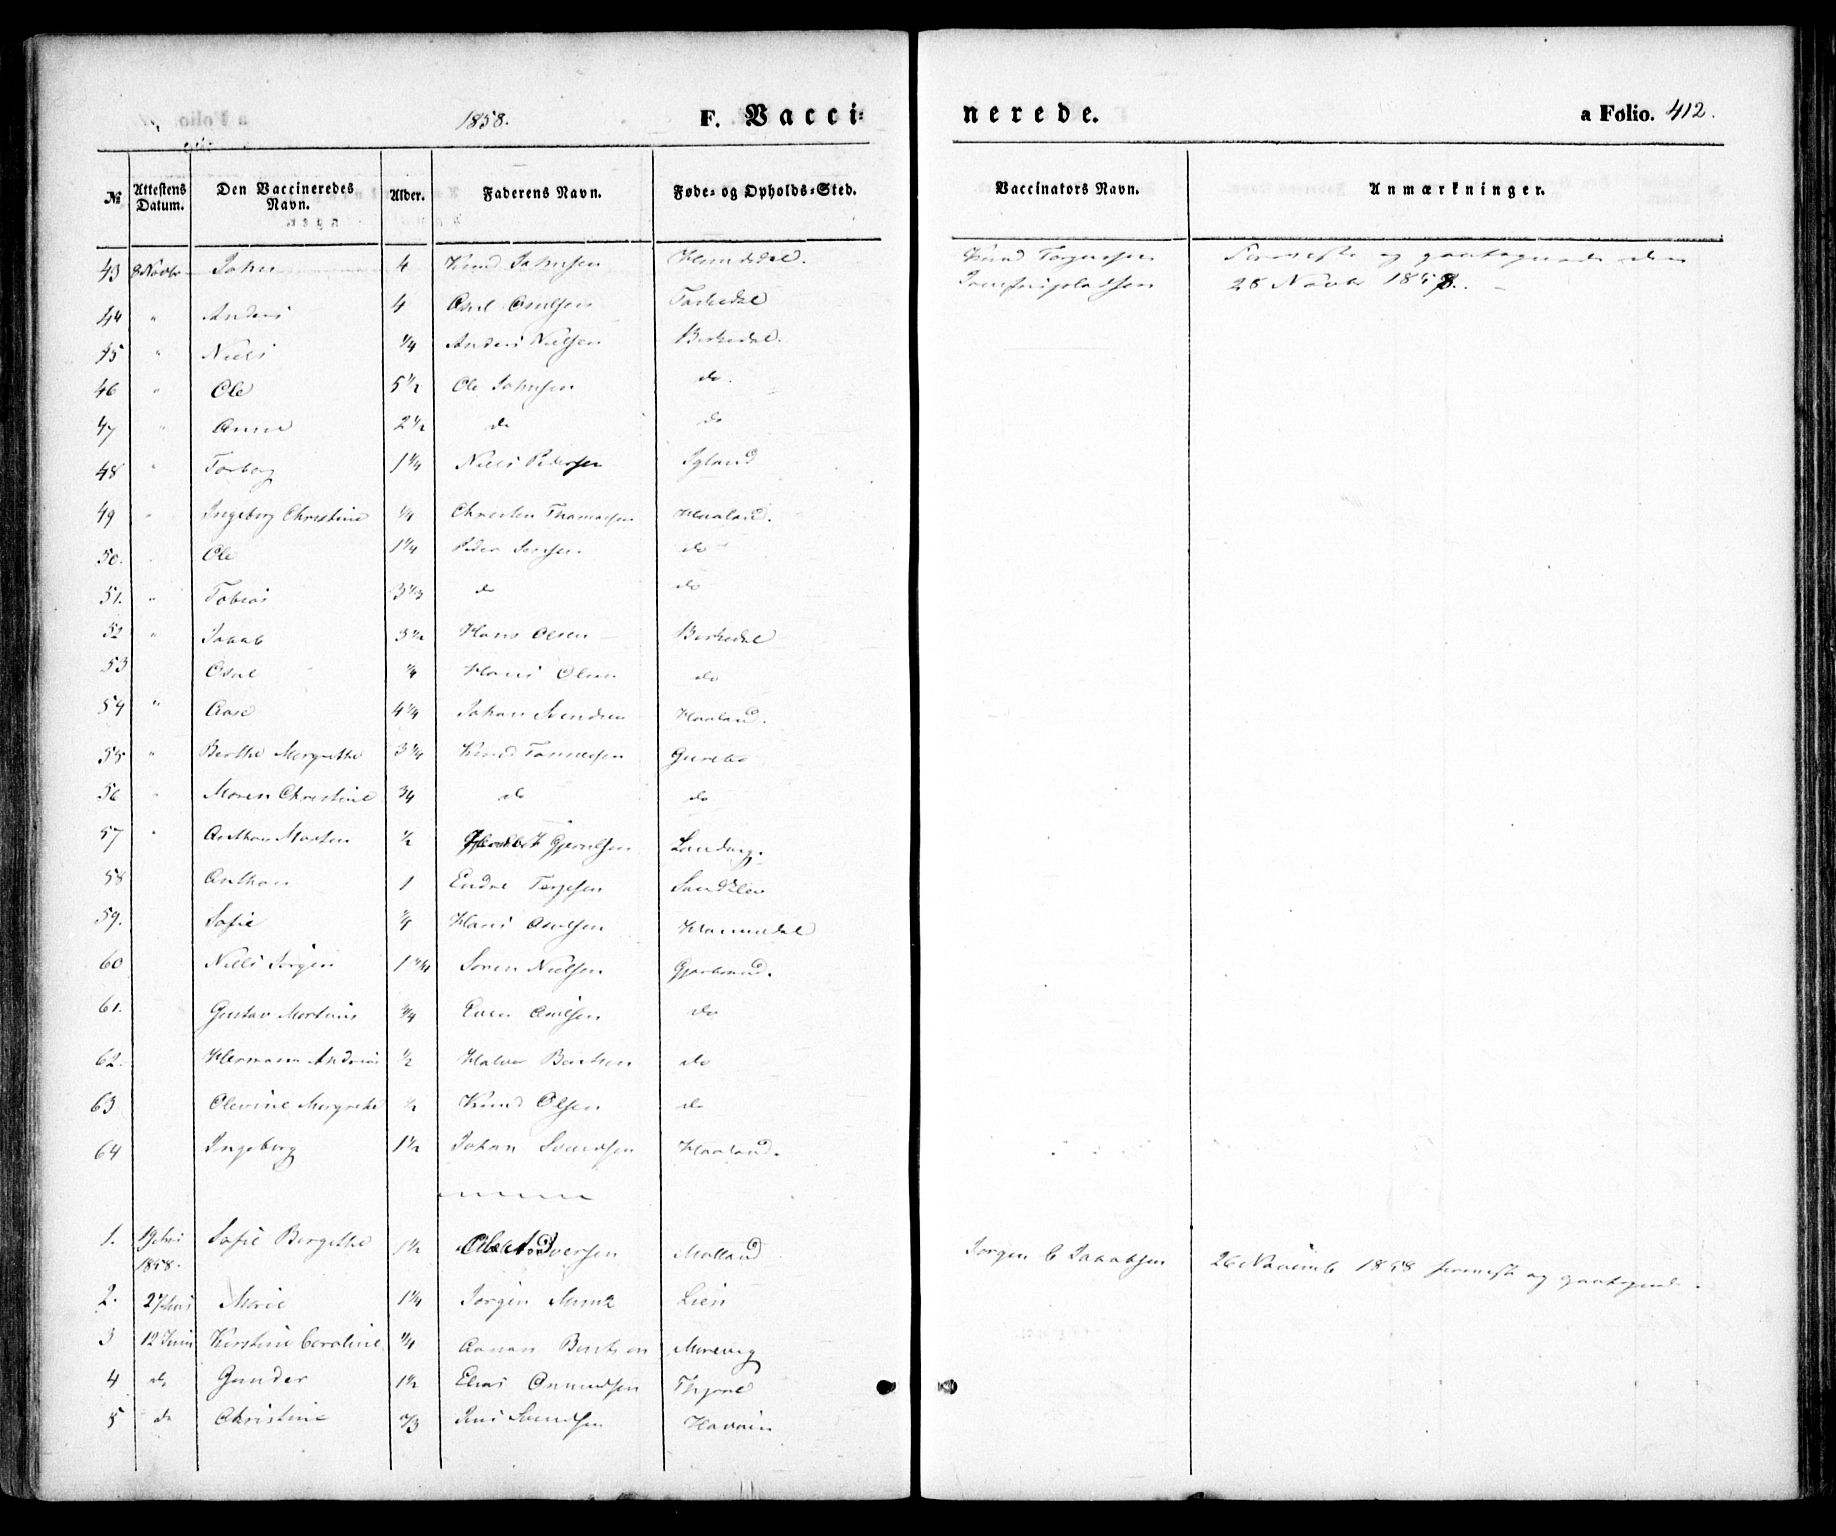 1858. F. Vacci= nerede. a Folio. 412.
№ Attestens Datum. Den Vaccineredes Navn. Alder. Faderens Navn. Føde- og Opholds-Sted. Vaccinators Navn. Anmærkninger.
43 8 Novbr John 4 Knud Johnsen Knud Terjesen og den
44 " Anders 4 Osul Osulsen 28 Novbr 1858.
45 " Niels 1/4 Anders Nielsen Birkedal.
46 " Ole 5 1/2 Ole Johnsen do.
47 " Anne 2 1/2 do do
48 " Torborg 1 1/4 Niels Pedersen Igland
49 " Ingeborg Christine 1/4 Christen Thomassen Haaland.
50. Ole 1 1/4 Peder Jensen do
51. " Tobias 3 1/3 do do
52 " Jacob 3 1/2 Hans Olsen Birkedal
53 Osul 1/4 Hans Olsen do
54 " Aase 4 1/4 Johan Svendsen Haaland.
55 " Berthe Margrethe 3 1/4 Knud Tønnesen Gurebo
56 " Maren Christine 3/4 do do
57 " Anthon Martin 1/2 Gjerulsen Landvig.
58 Anthon 1 Endre Terjesen Sandklev
59. Sofie 3/4 Hans Osulsen
60 Niels Jørgen 1 Søren Nielsen Gjerbrand.
61. Gustav Martinus 3/4 Even Osulsen do
62. Hermann Andreas 1/2 Halvor Bentsen do
63 Olevine Margrethe 1/2 Knud Olsen do
64 Ingeborg 1 1/2 Johan Svendsen Haaland.
1. 19 1858. Sofie Bergitthe 1 1/2 Iversen Molland Jørgen C Jacobsen 26 Novemb 1858 og
2. 27 Marie 1 1/4 Jørgen Muntz Lien
3 12 Juni Kirstine Caroline 1/4 Aanon Bentsen Morevig
4 do Gunder 1 1/2 Elias Onnundsen
5 do Christine 2/3 Jens Svendsen